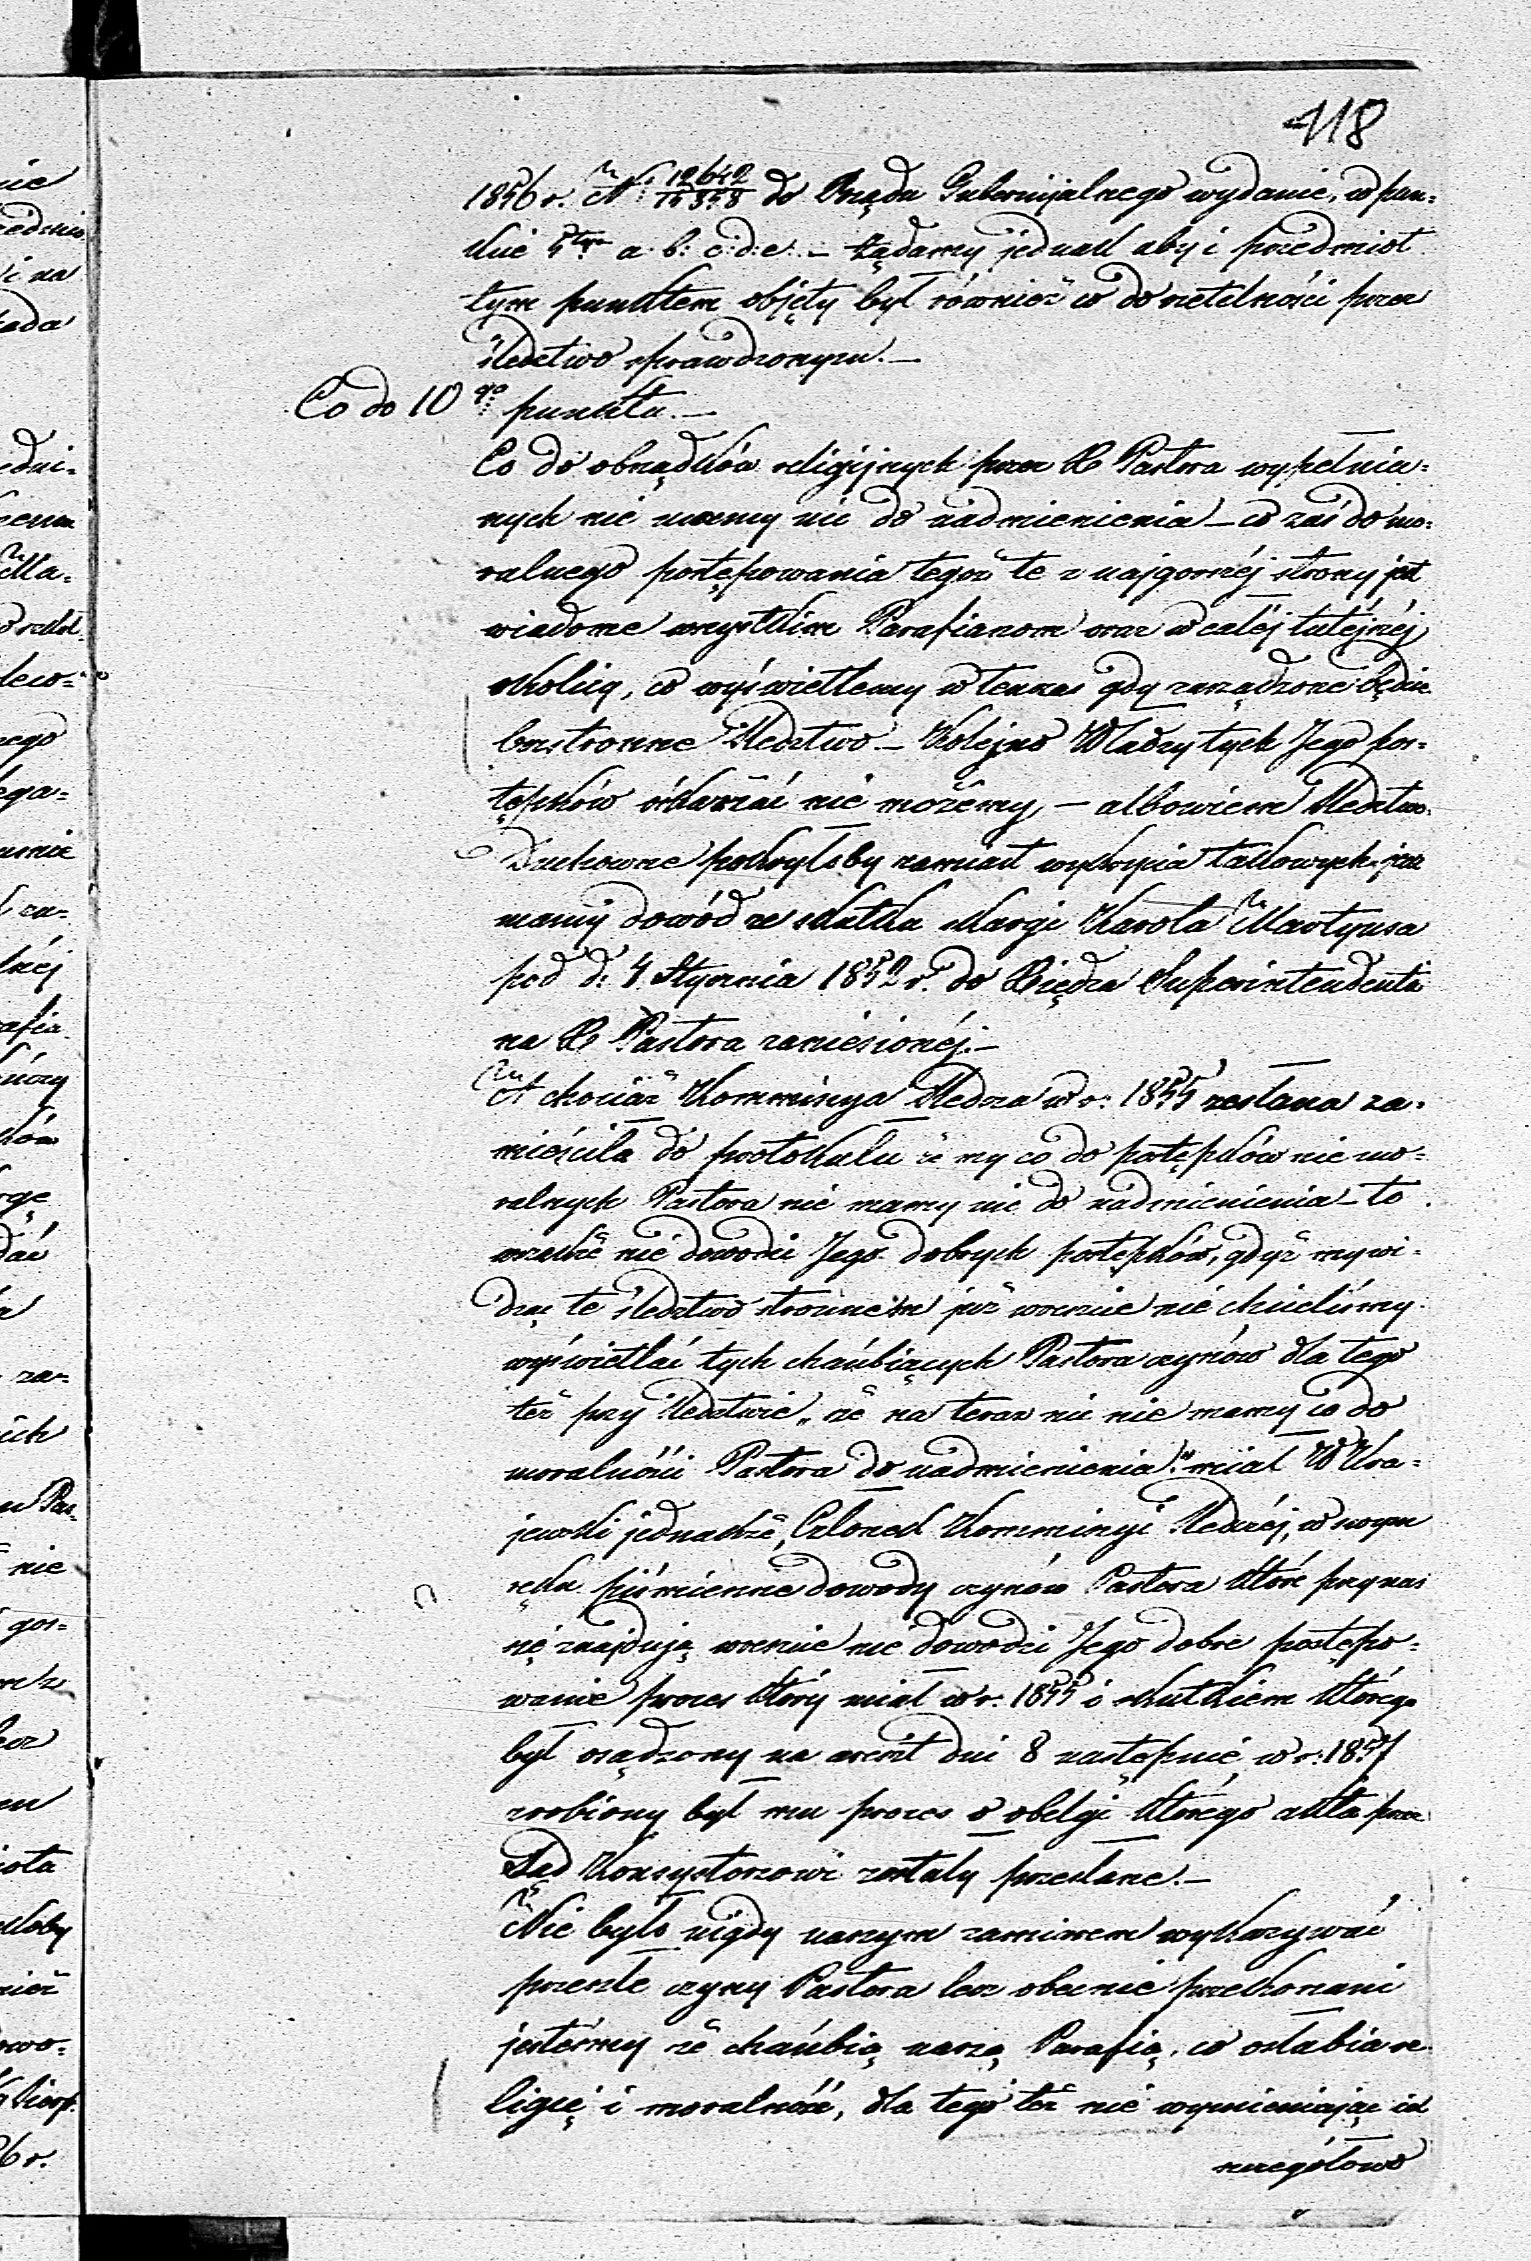 118
1856 r. N: 12642/15358 do Rządu Gubernijalnego wydanie, w pun=
kcie 5tym a. b: c: d: e: – Żądamy jednak aby i przedmiot
tym punktem objęty był również co do rzetelności przez
śledztwo sprawdzonym. –
Co do 10go punktu. –
Co do obrządków religijnych przez X Pastora wypełnia=
nych nie mamy nic do nadmienienia – co zaś do mo=
ralnego postępowania tegoż te z najgorszéj strony jest
wiadome wszystkim Parafianom oraz w całéj tutéjszéj
okolicy, co wyświetlemy w tenczas gdy zarządzone będzie
bezstronne śledztwo – Kolejno Władzy tych Jego pos=
tępków oskarżać nie możemy, – albowiem śledztwo
Duchowne pokryłoby zamiast wykrycia takowych, jak
mamy dowód ze skutku skargi Karola Martyusa
pod d: 4 Stycznia 1852 r. do Xiędza Superintendenta
na X Pastora zaniesionéj. –
A chociaż Kommisyja śledcza w r: 1855 zesłana za=
mieściła do protokułu że my co do postępków nie mo=
ralnych Pastora nie mamy nic do nadmienienia – to
wszakże nie dowodzi Jego dobrych postępków, gdyż my wi=
dząc te śledztwo stronnem już wcześnie nie chcieliśmy
wyświetlać tych chańbiących Pastora czynów dla tego
też przy śledztwie „że na teraz nic nie mamy co do
moralności Pastora do nadmienienia." miał W Kra=
jewski jednakże, Członek Kommisyi śledczéj, w swym
ręku piśmienne dowody czynów Pastora które przy nas
się znajdują, wcześnie nie dowodzi Jego dobre postępo=
wanie proces który miał w r: 1855 i skutkiem którego
był osądzony na areszt dni 8 następnie w r: 1857
zrobiony był mu proces o obelgi którego akta przez
Sąd Konsystorzowi zostały przesłane. –
Nie było nigdy naszym zamiarem wykazywać
przeszłe czyny Pastora lecz obecnie przekonani
jesteśmy że chańbią naszą Parafią, co osłabia re=
ligię i moralność, dla tego też nie wymieniając ich
szczegółowo